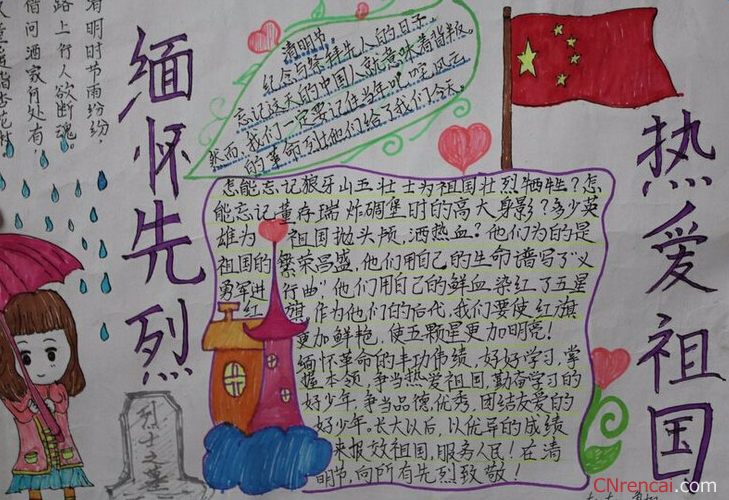 缅怀先烈
热爱祖国
明时节雨纷纷，
路上行人欲断魂。
借问酒家何处有，
清明节，
纪念与祭拜先人的日子
忘记这天的中国人就意味着背叛。
然而，我们一定要记住当年叱咤风云
的革命烈士他们给了我们今天。
怎能忘记狼牙山五壮士为祖国壮烈牺牲？怎
能忘记董存瑞炸碉堡时的高大身影？多少英
雄为祖国抛头颅，洒热血？他们为的是
祖国的繁荣昌盛，他们用自己的生命谱写了“义
勇军进行曲”他们用自己的鲜血染红了五星
红旗，作为他们的后代，我们要使红旗
更加鲜艳，使五颗星更加明亮！
缅怀革命的丰功伟绩，好好学习，掌
握本领，争当热爱祖国，勤奋学习的
好少年，争当品德优秀，团结友爱的
好少年。长大以后，以优异的成绩
来报效祖国，服务人民！在清
明节，向所有先烈致敬！
烈士之墓
CNrencai.com